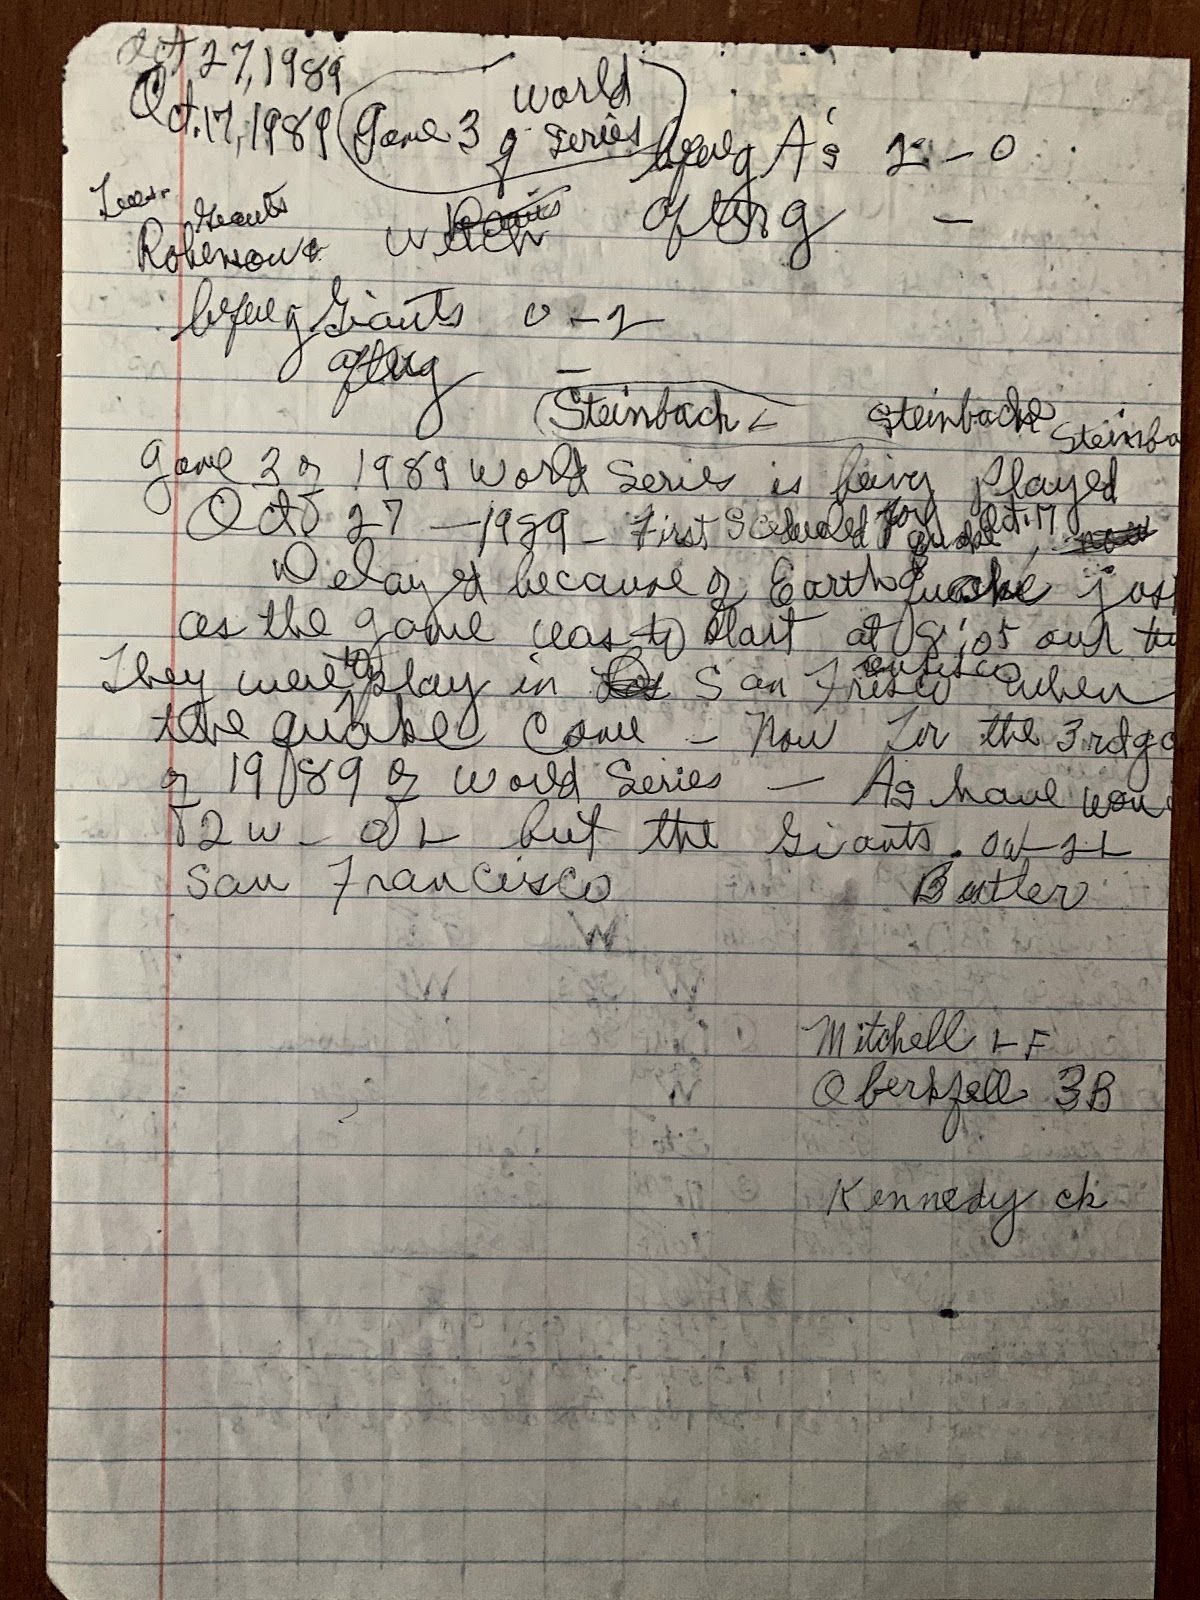 Oct 27, 1989
Oct. 17, 1989 Game 3 of World Series before g A's 2-0
after g -
Giants
Robinson
before g Giants 0-2
after g -
Steinbach Steinbache Steinba
Game 3 of 1989 World Series is being Played
Oct 27 - 1989 - First for Oct. 17
Delayed because of Earthquake just
as the game was to start at 8:05 our
They were to play in San Frisco when
the quake Come - Now for the 3rd ga
of 1989 of World Series - As have won
2W-0L but the Giants. 0W-2L
San Francisco Butler
Mitchell LF
Oberkfell 3B
Kennedy ch